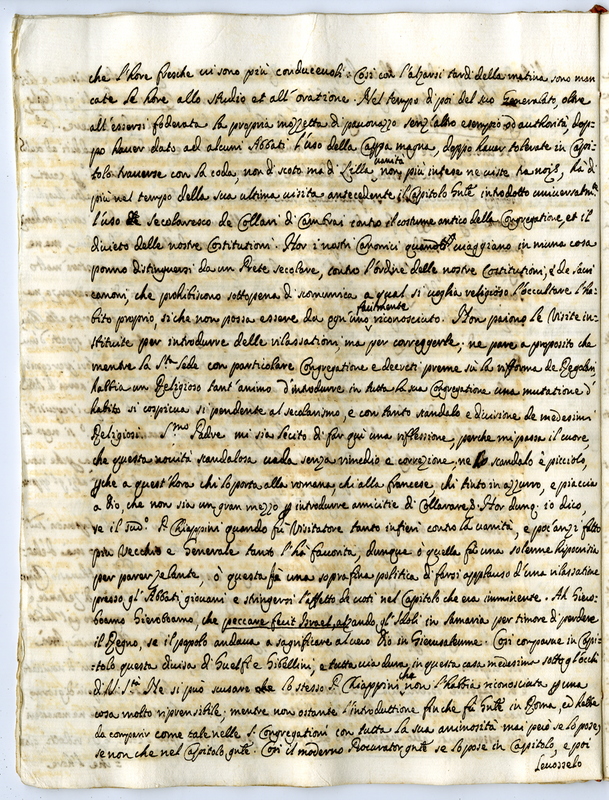 che l'hore fresche vi sono più conducevoli: Così con l'alzarsi tardi della matina sono man
cate le hore allo studio et all'oratione. Nel tempo di poi del suo Generalato, oltre
all'essersi foderata la propria mozzetta di pavonazzo senz'altro esempio ò authorità, dop-
po haver dato ad alcuni Abbati l'uso della Cappa magna, doppo haver tolerate in Capi-
tolo traverse con la coda, non di scoto mà di vanità non più intese ne viste trà noi, hà di
più nel tempo della sua ultima visita antecedente il Capitolo Gnãle introdotto universalmte
l'uso secolaresco de Collari di Cambrai contro il costume antico della Congregatione, et il
divieto delle nostre Costitutioni. Hor i nostri Canonici viaggiano in niuna cosa
ponno distinguersi da un Prete secolare, contro l'ordine delle nostre Costitutioni, è de sacri
canoni, che prohibiscono sotto pena di scomunica a qual si voglia religioso l'occultare l'ha-
bito proprio, si che non possa essere da ogn'uno facilmente riconosciuto. Non paiono le Visite in-
stituite per introdurre delle rilassationi, ma per correggerle; ne pare a proposito che
mentre la Sta Sede con particolare Congregatione e decreti preme sù la rifforma de Regolari,
habbia un Religioso tant'animo d'introdurre in tutta la sua Congregatione una mutatione d'
habito si cospicua si pendente al secolarismo, e con tanto scandalo e divisione de medesimi
Religiosi. Smo Padre mi sia lecito di far quì una riflessione, perche mi passa il cuore,
che questa novità scandalosa vada senza rimedio e corretione, ne lo scandalo è picciolo,
pche a quest'hora chi lo porta alla romana, chi alla francese chi tinto in azzurro, e piaccia
a Dio, che non sia un gran mezzo p introdurre amicitie di Collarare. Hor dunq; io dico,
se il sudo P. Chiappini quando fù Visitatore tanto infierì contro la vanità, e poc'anzi fatto
più Vecchio e Generale tanto l'hà favorita, dunque ò quella fù una solenne hipocrisia
per parer zelante, ò questa fù una soprafina politica di farsi applauso d'una rilassatione
presso gl'Abbati giovani e stringersi l'affetto de voti nel Capitolo che era imminente. Ah Giero-
boamo Gieroboamo, che peccare fecit Israel, alzando gl'Idoli in Samaria per timore di perdere
il Regno, se il popolo andava a sagrificare al vero Dio in Gierusalemme. Così comparve in Capi-
tolo questa divisa di Guelfi e Gibellini, e tuttavia dura in questa casa medesima sotto gl'occhi
di V. Stà. Ne si può scusare lo stesso P. Chiappini, che non l'habbia riconosciuta p una
cosa molto riprensibile; mentre non ostante l'introduttione finche fù Gnãle in Roma, ed habbe
da comparir come tale nelle S. Congregationi con tutta la sua animosità mai però se lo pose,
se non che nel Capitolo gnãle. Così il moderno Procurator gnãle se lo pose in Capitolo, e poi
levosselo